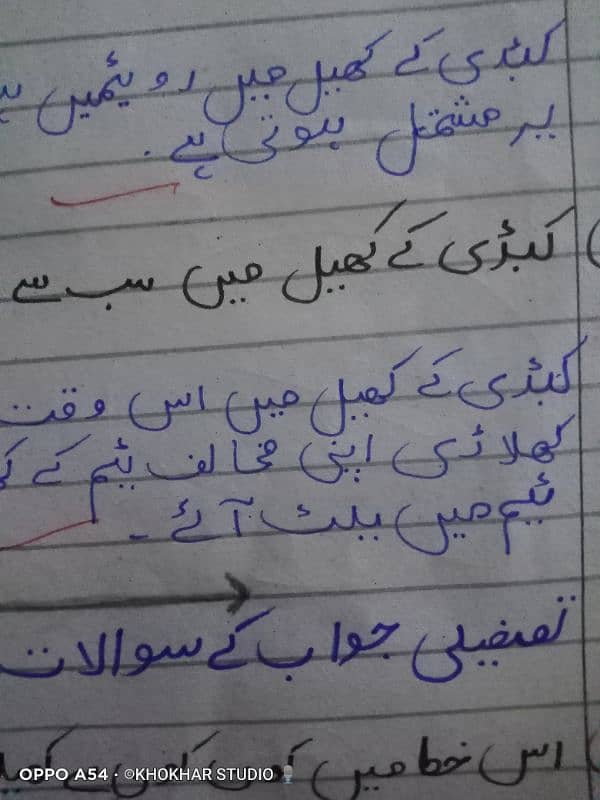 کبڈی کے کھیل میں دو ٹیمیں
پر مشتمل ہوتی ہے۔
کبڑی کے کھیل میں سب سے
کبڈی کے کھیل میں اس وقت
کھلاڑی اپنی مخالف ٹیم کے
ٹیم میں پلٹ آئے۔
تفصیلی جواب کے سوالات
اس خط میں کون کون سے
OPPO A54 · ©KHOKHAR STUDIO🎙️